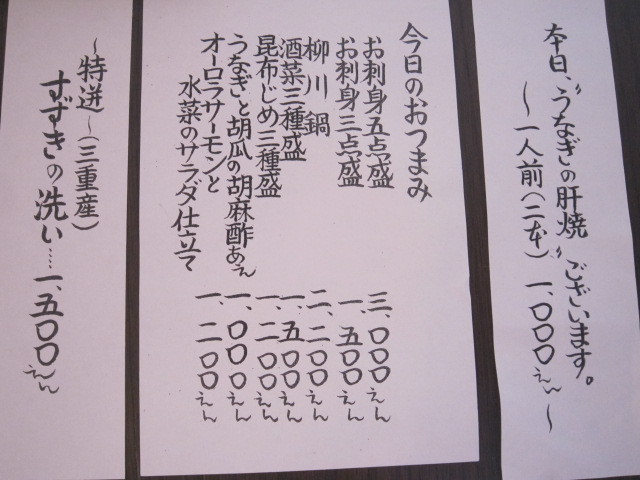 本日、"うなぎの肝焼"ございます。
〜一人前(二本)一、〇〇〇えん〜
今日のおつまみ
お刺身五点盛 三、〇〇〇えん
お刺身三点盛 一、五〇〇えん
柳川鍋 二、二〇〇えん
酒菜三種盛 一、五〇〇えん
昆布じめ三種盛 一、二〇〇えん
うなぎと胡瓜の胡麻酢あえ 一、〇〇〇えん
オーロラサーモンと
水菜のサラダ仕立て 一、二〇〇えん
〜特選〜(三重産)
すずきの洗い……一、五〇〇えん